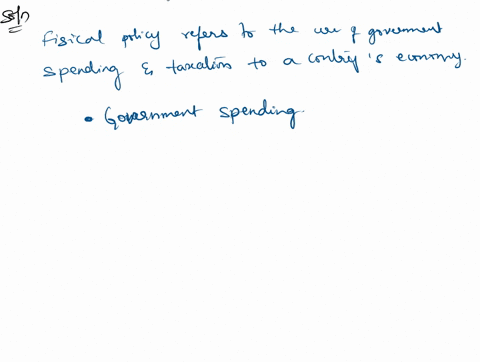 Soln
fisical policy refers to the use of government
spending & taxation to a contry's economy.
• Government spending.